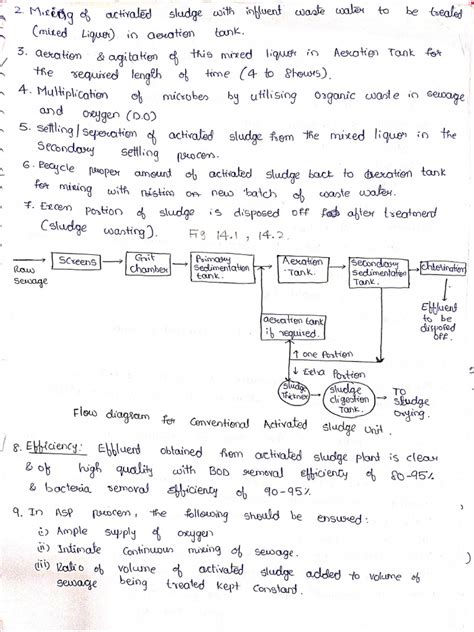 2. Mixing of activated sludge with influent waste water to be treated
(mixed Liquor) in aeration tank.
3. aeration & agitation of this mixed liquor in Aeration Tank for
the required length of time (4 to 8hours).
4. Multiplication of microbes by utilising organic waste in sewage
and oxygen (D.O)
5. settling/seperation of activated sludge from the mixed liquor in the
Secondary settling process.
6. Recycle proper amount of activated sludge back to Aeration tank
for mixing with on new batch of waste water.
7. Excess portion of sludge is disposed off after treatment
(sludge wasting). Fig 14.1, 14.2.
Raw
sewage
Screens
Grit
chamber
Primary
sedimentation
tank
Aeration
Tank.
Secondary
sedimentation
Tank.
Chlorination
Effluent
to be
disposed
off.
aeration tank
if required.
↑ one Portion
↓ Extra Portion
sludge
thickner
sludge
digestion
Tank.
TO
sludge
drying.
Flow diagram for Conventional Activated sludge Unit.
8. Efficiency: Effluent obtained from activated sludge plant is clear
& of high quality with BOD removal efficiency of 80-95%
& bacteria removal efficiency of 90-95%
9. In ASP process, the following should be ensured:
i) Ample supply of oxygen
(ii) Intimate Continuous mixing of sewage.
(iii) Ratio of volume of activated sludge added to volume of
sewage being treated kept Constant.